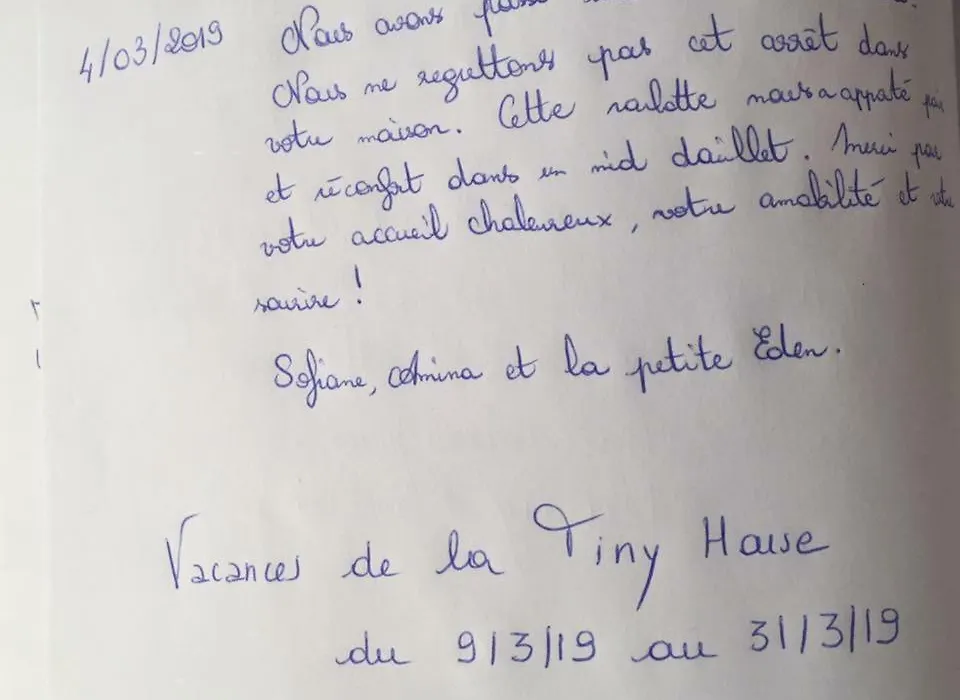 4/03/2019 Nous avons
Nous ne regrettons pas cet arrêt dans
votre maison. Cette roulotte nous a appaté
et réconfort dans un nid daillet. Merci par
votre accueil chaleureux, votre amabilité et votre
sourire !
Sofiane, Amina et la petite Eden.
Vacances de la Tiny House
du 9/3/19 au 31/3/19